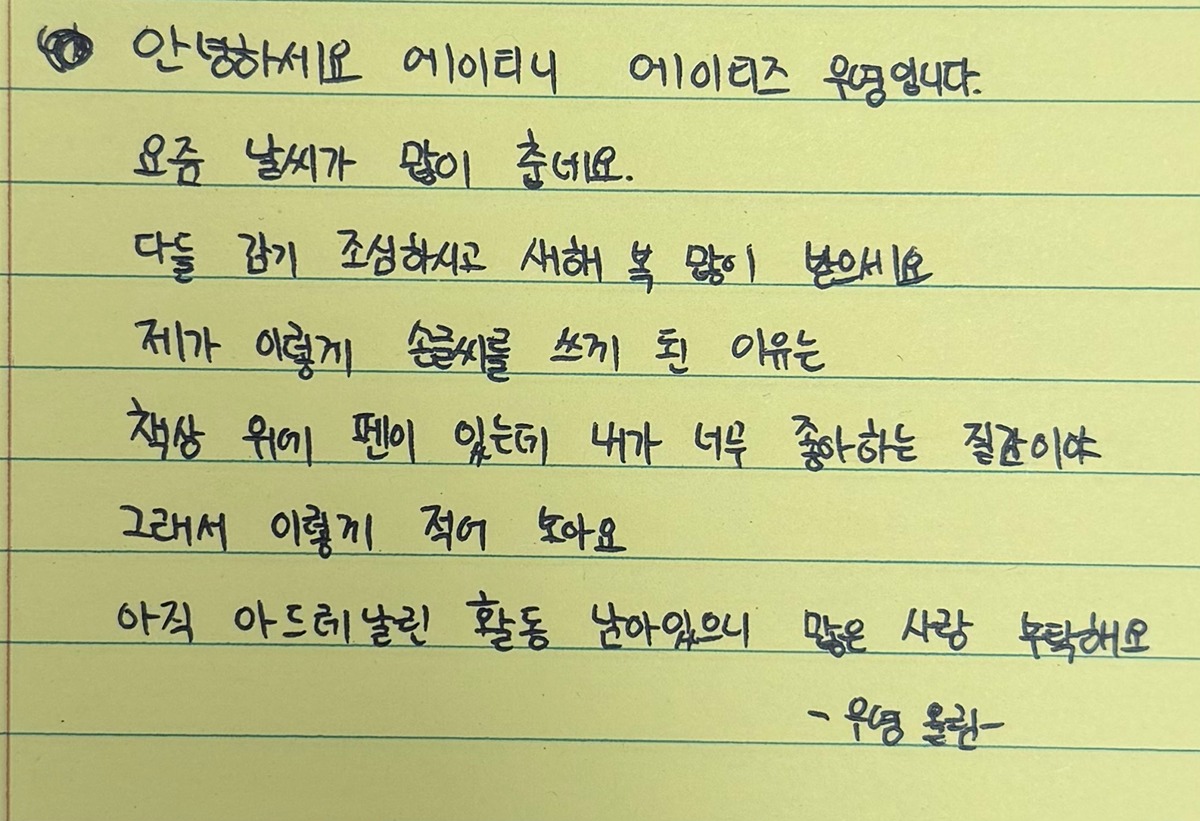 안녕하세요 에이티니 에이티즈 우영입니다.
요즘 날씨가 많이 춥네요.
다들 감기 조심하시고 새해 복 많이 받으세요
제가 이렇게 손글씨를 쓰게 된 이유는
책상 위에 펜이 있는데 내가 너무 좋아하는 질감이야
그래서 이렇게 적어 놓아요
아직 아드레날린 활동 남아있으니 많은 사랑 부탁해요
- 우영 올림 -